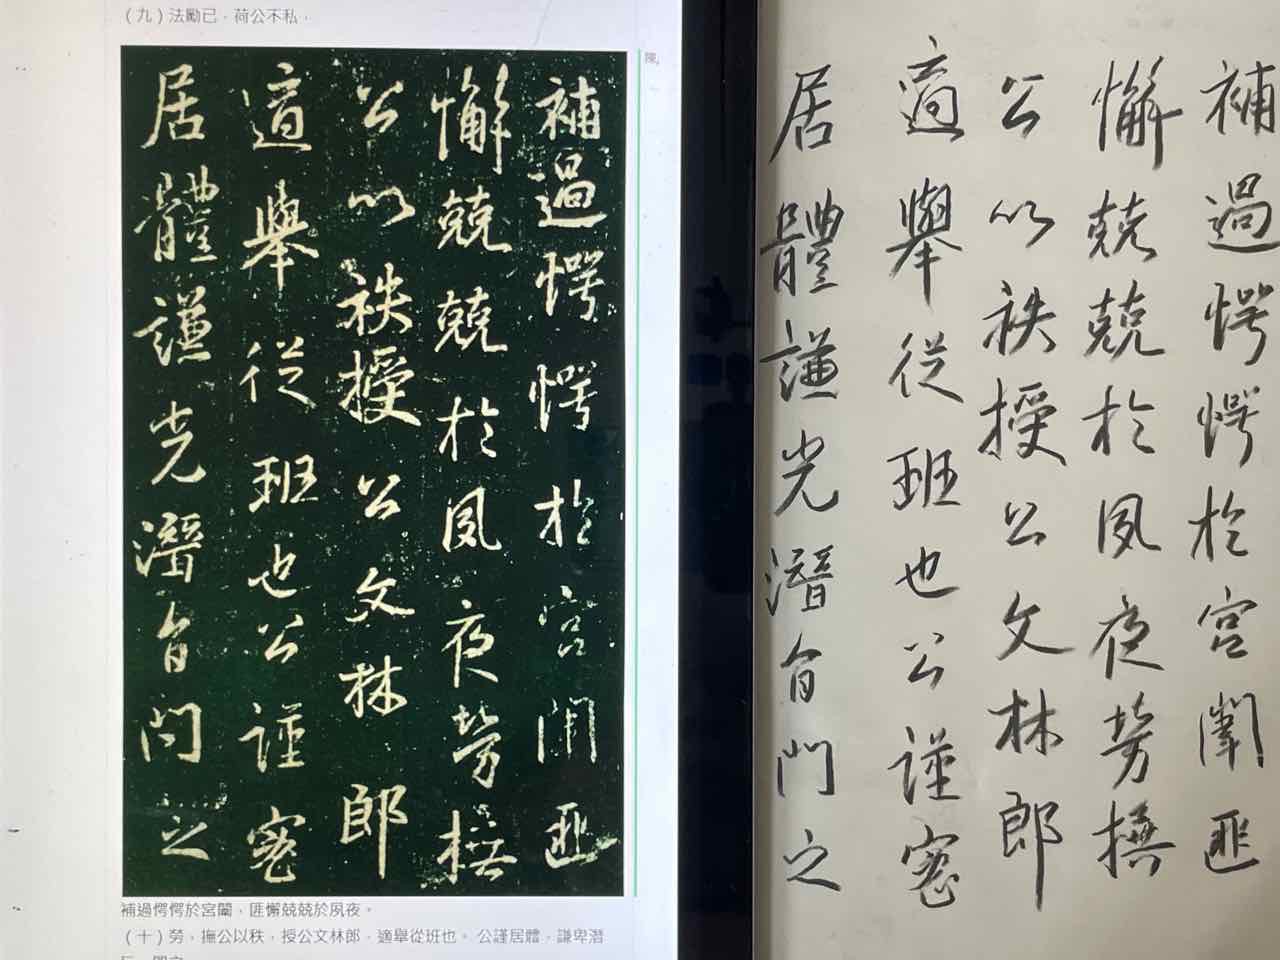 （九）法勵已，荷公不私，
陳,
補過愕愕於宮闈匪
懈兢兢於夙夜勞撫
公以秩授公文林郎
適舉從班也公謹密
居體謙光潛旨問之
補過愕愕於宮闈，匪懈兢兢於夙夜。
（十）勞，撫公以秩，授公文林郎，適舉從班也。 公謹居體，謙卑潛
補過愕愕於宮闈匪
懈兢兢於夙夜勞撫
公以秩授公文林郎
適舉從班也公謹密
居體謙光潛旨門之